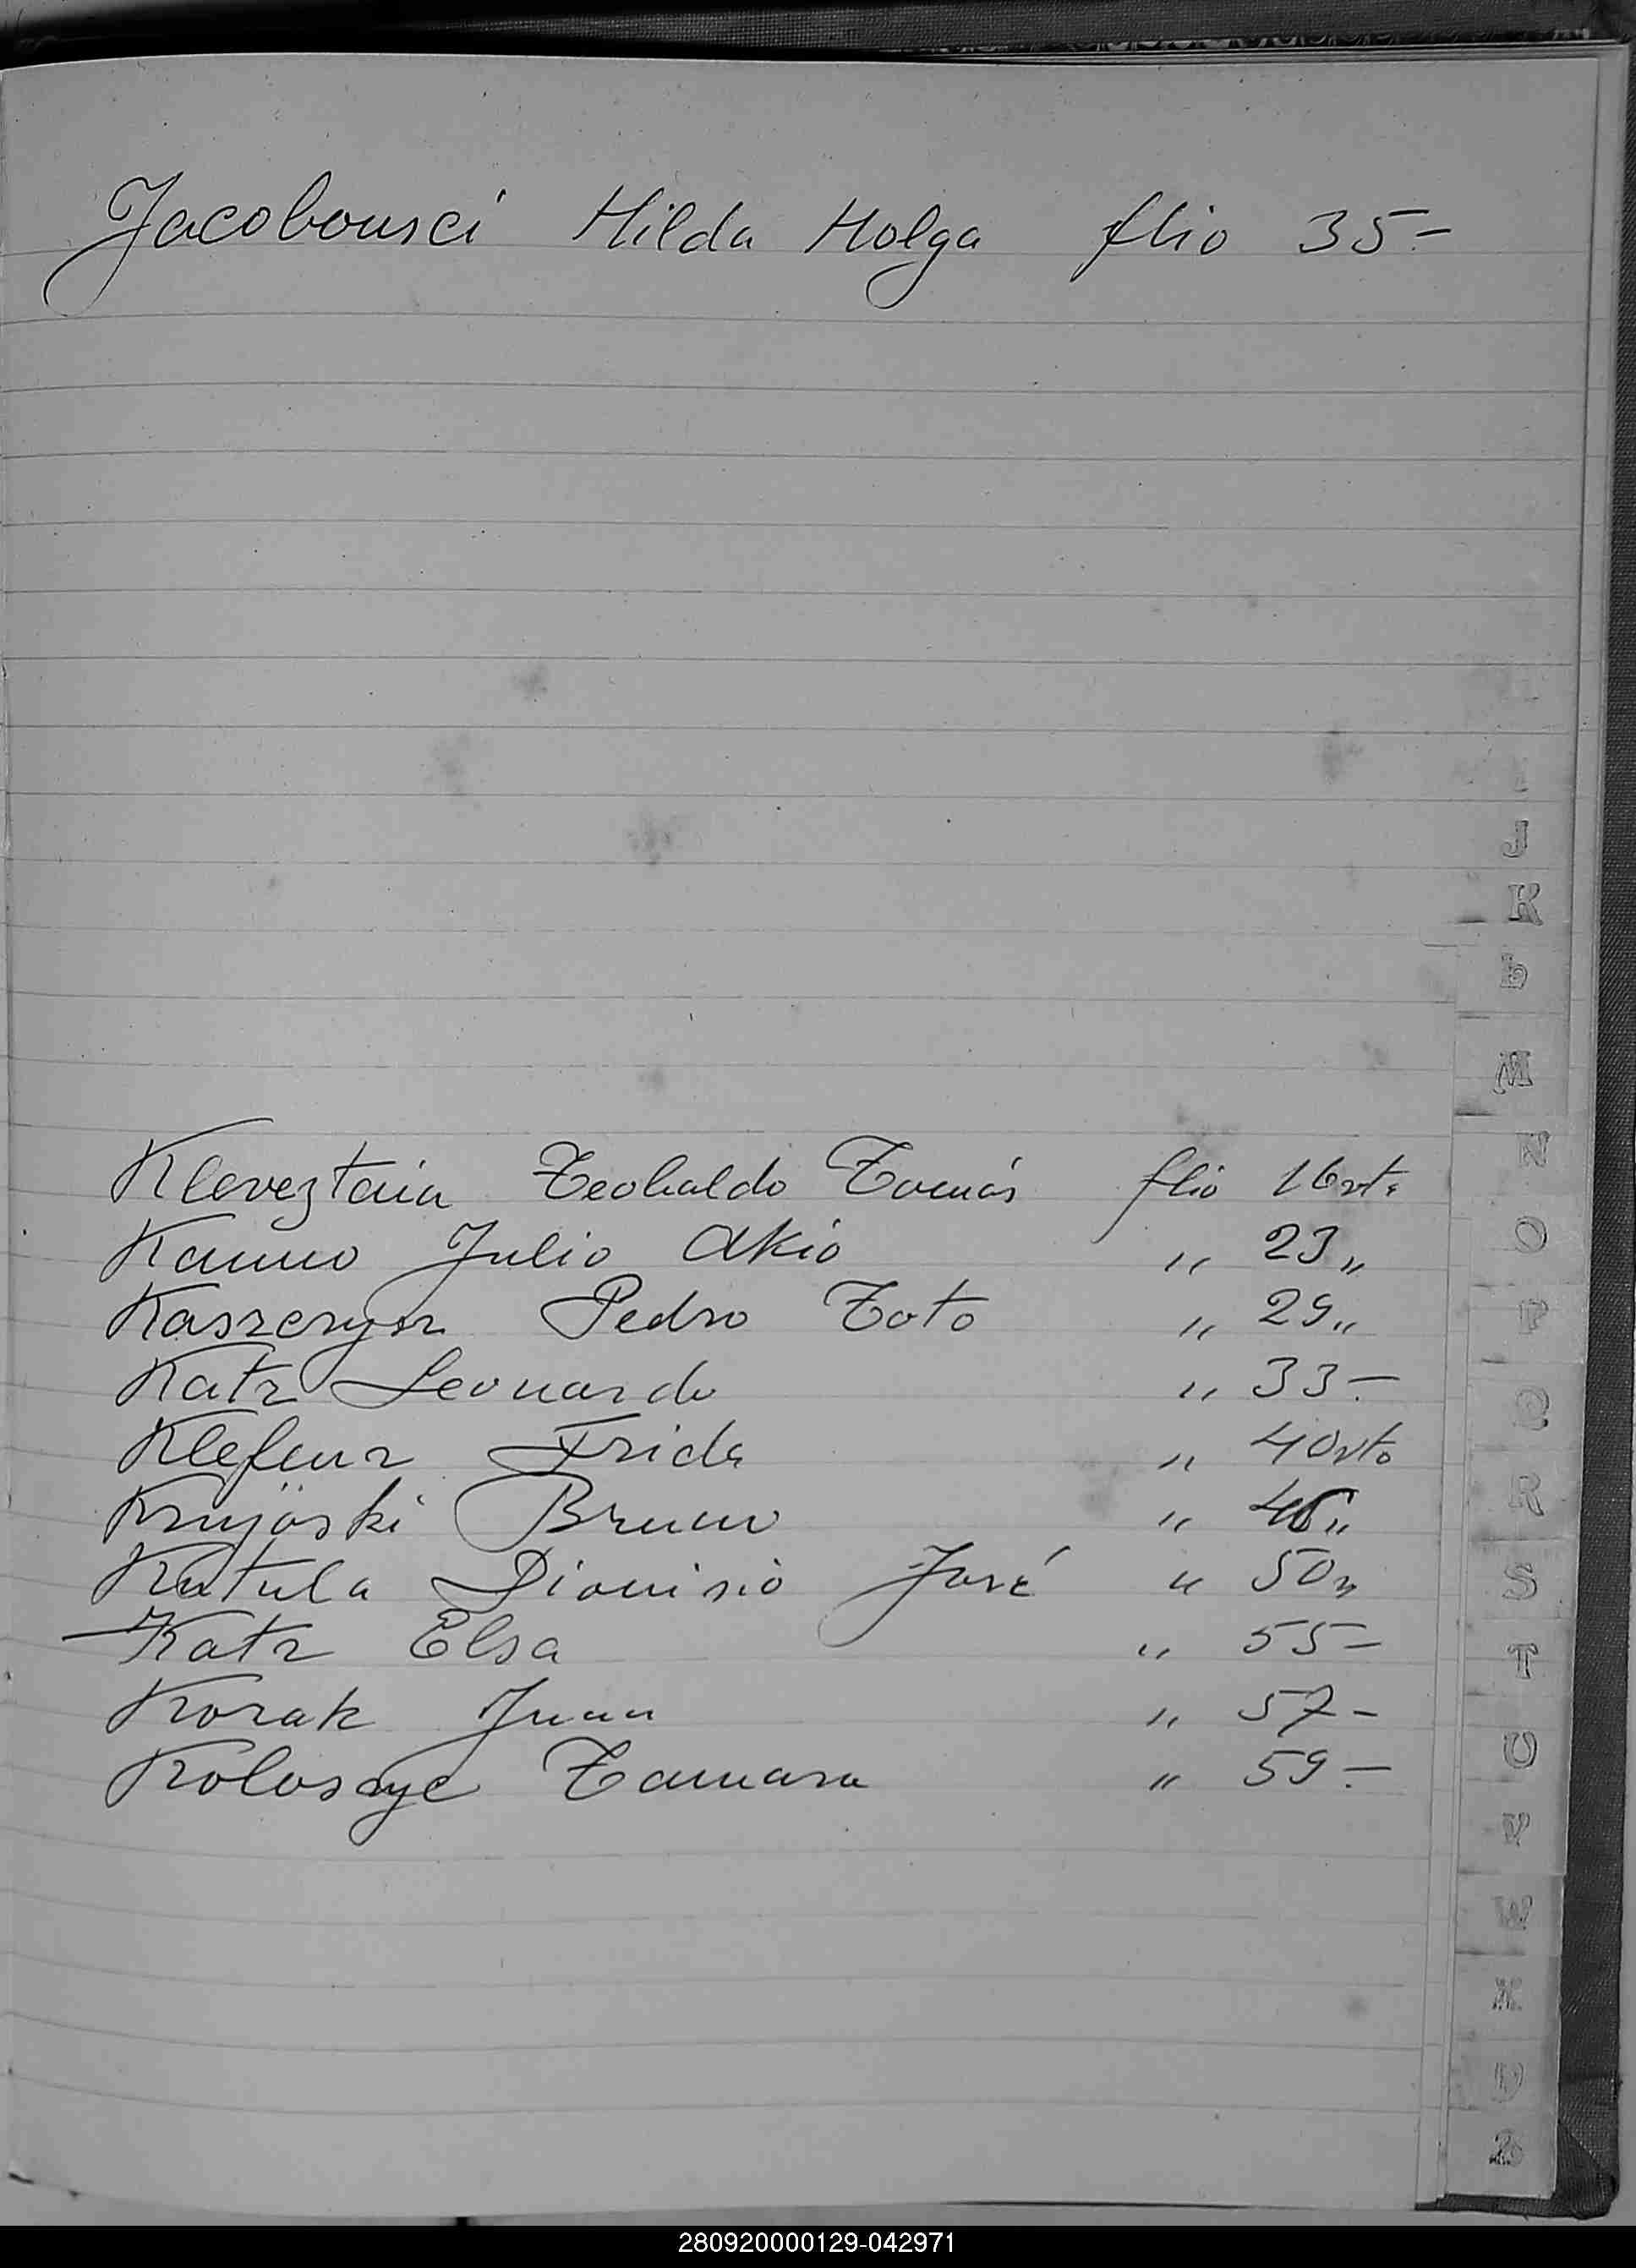 Jacobousci Hilda Holga flio 35-
Kleveztain Teobaldo Tomás flio 16vta
Kanno Julio Akio " 23 "
Kaszeryor Pedro Toto " 29 "
Katz Leonardo " 33-
Klefenz Frida " 40vto
Krujoski Bruno " 46 "
Katula Dionisio José " 50 "
Katz Elsa " 55-
Kozak Juan " 57-
Koloscye Tamara " 59-
J
K
L
M
N
O
P
Q
R
S
T
U
V
W
X
Y
Z
280920000129-042971